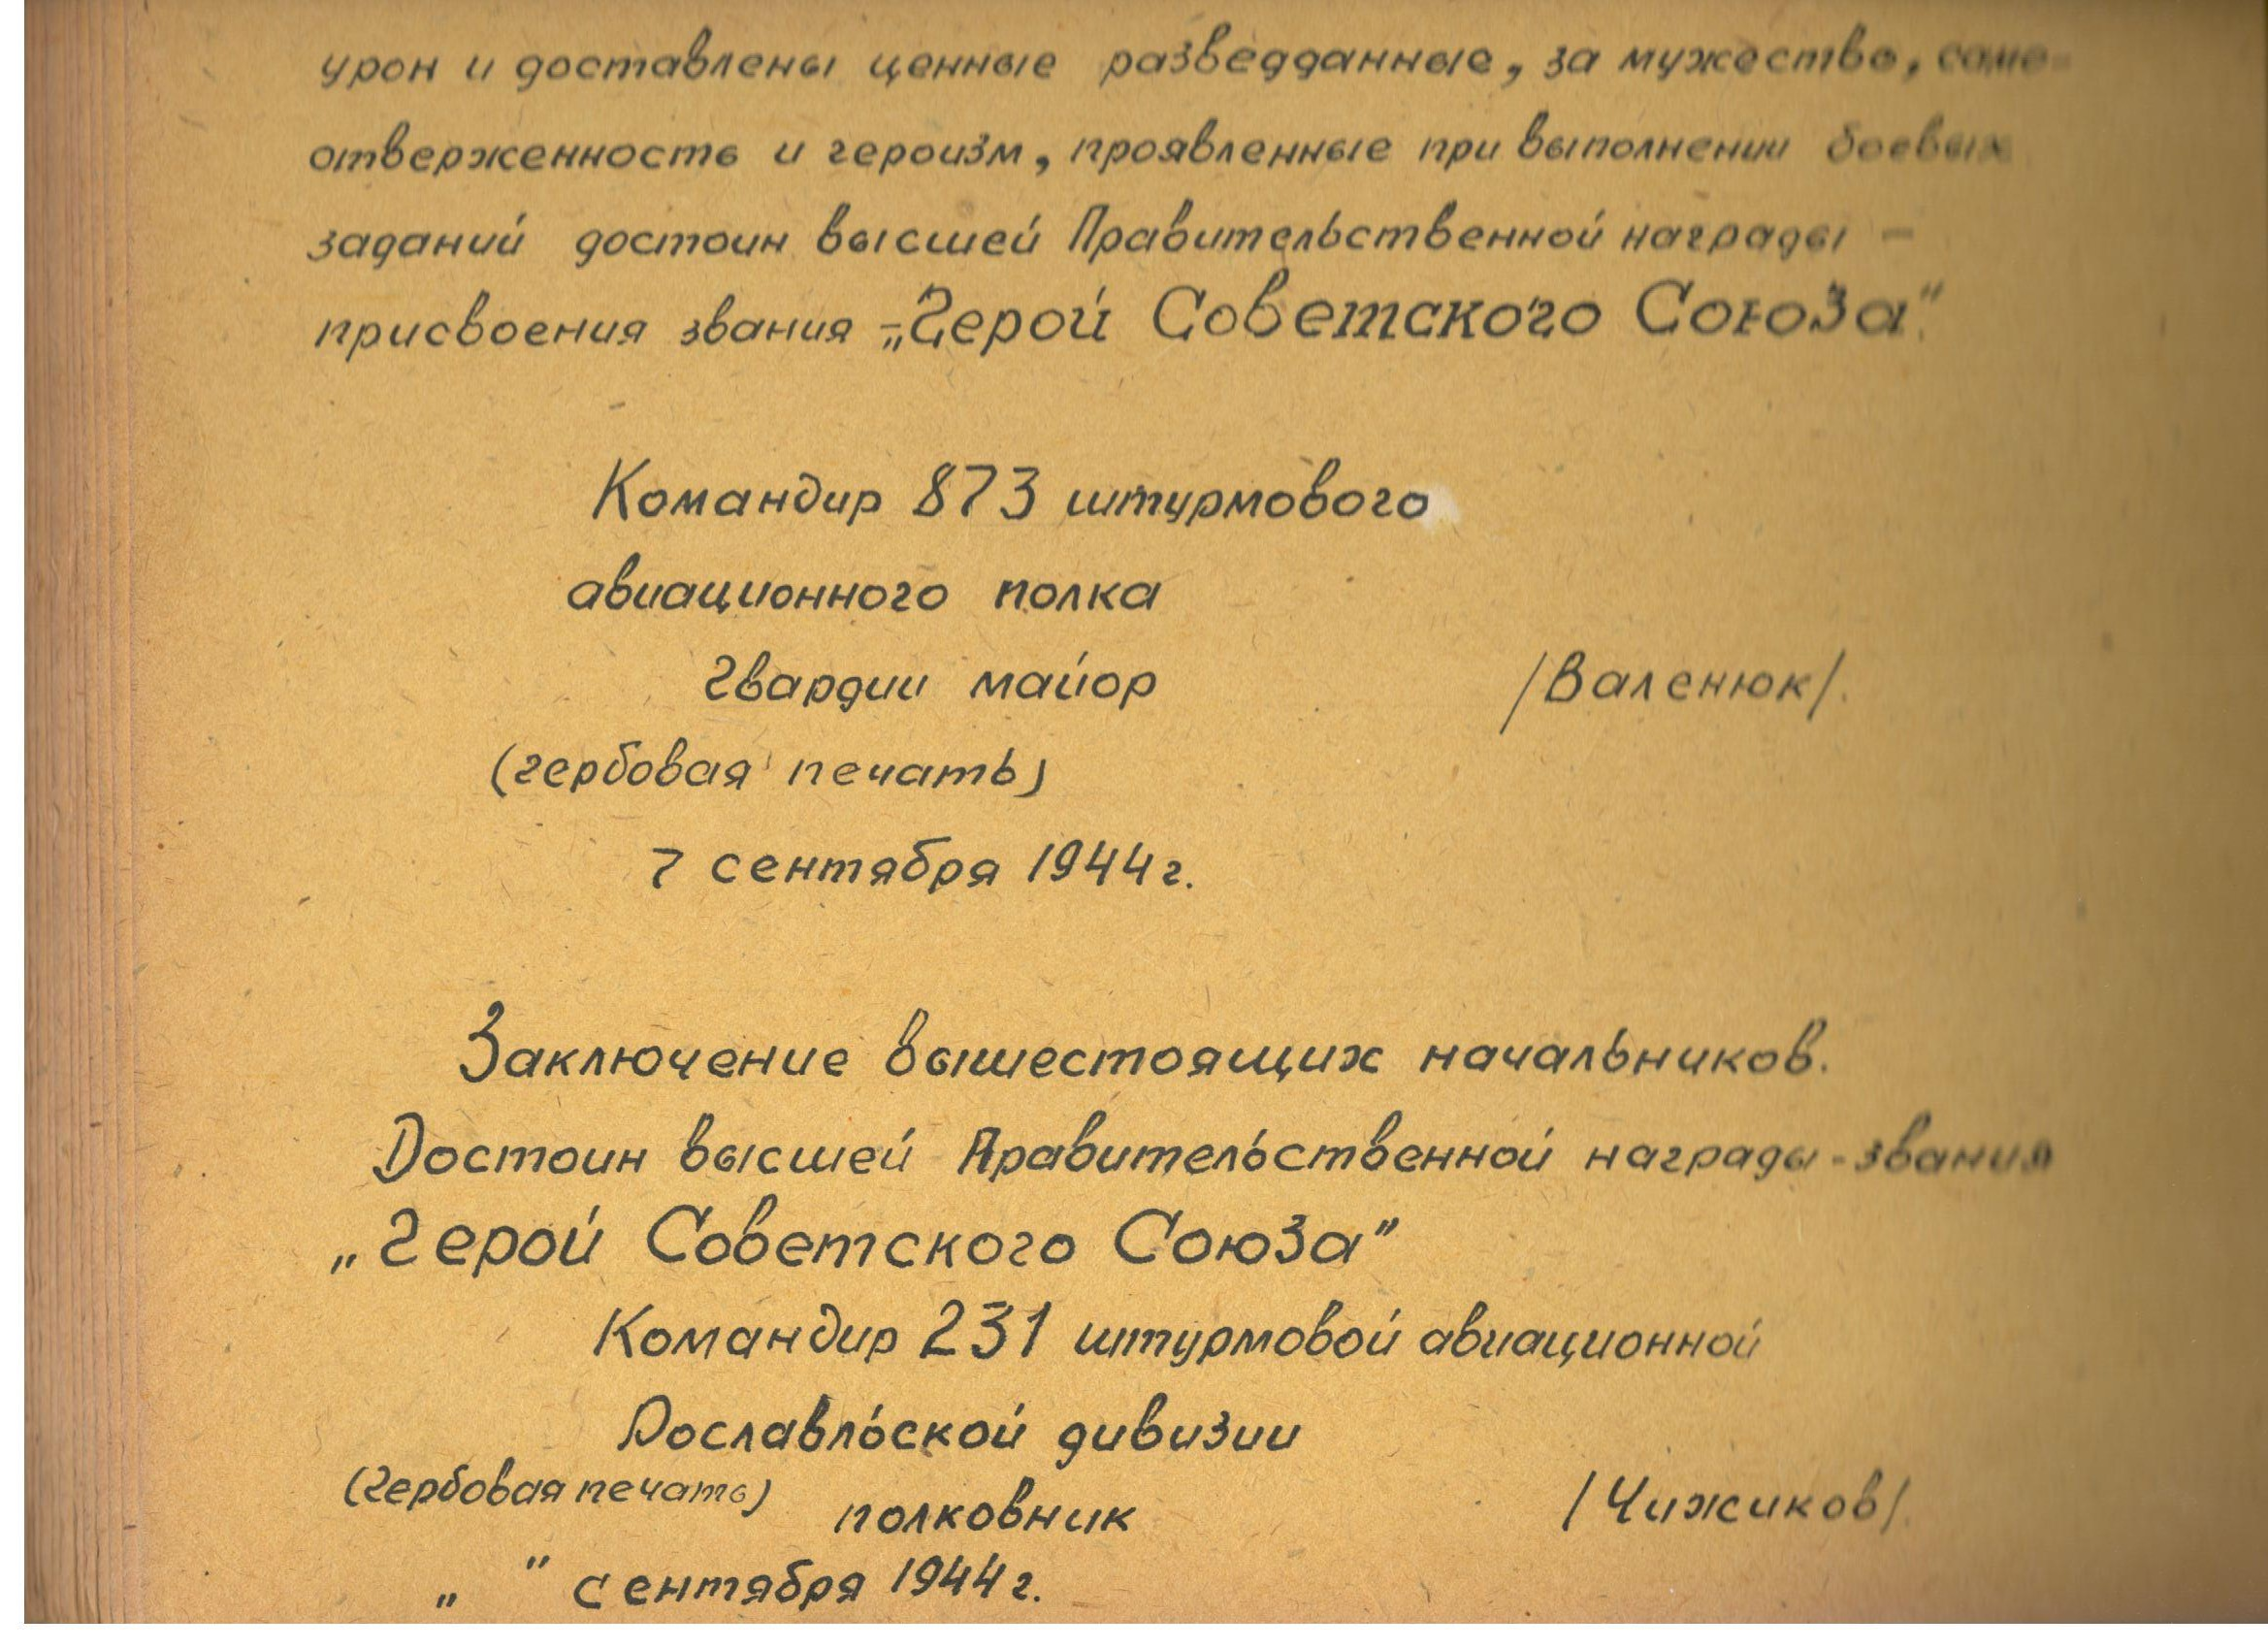 урон и доставлены ценные разведданные, за мужество, само-
отверженность и героизм, проявленные при выполнении боевых
заданий достоин высшей Правительственной награды –
присвоения звания –„Герой Советского Союза".
Командир 873 штурмового
авиационного полка
Гвардии майор /Валенюк/.
(гербовая печать)
7 сентября 1944г.
Заключение вышестоящих начальников.
Достоин высшей Правительственной награды - звания
„Герой Советского Союза"
Командир 231 штурмовой авиационной
Рославльской дивизии
(Гербовая печать) полковник /Чижиков/.
„ " сентября 1944г.